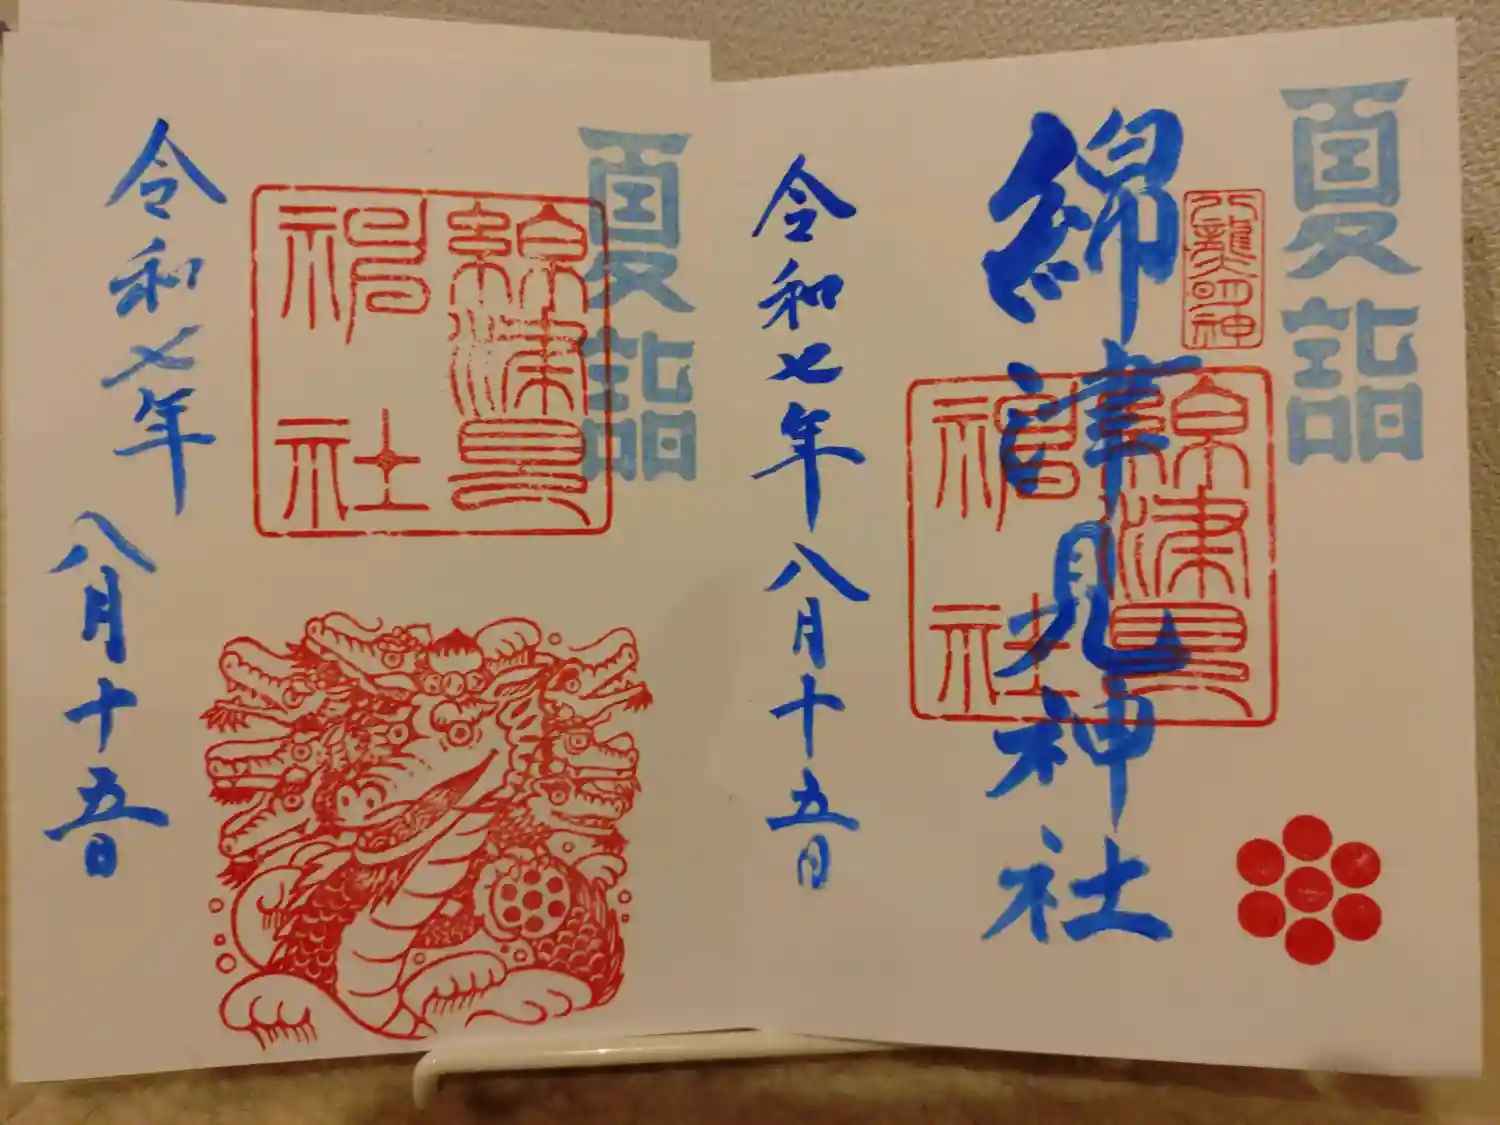 夏詣
八龍大明神
綿津見神社
綿津見
神社
令和七年八月十五日
夏詣
綿津見
神社
令和七年
八月十五日